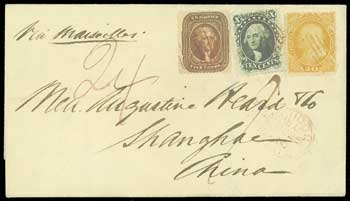 Via Marseilles
24
Mess. Augustine Heard & Co
Shanghae
China
FIVE CENTS
TEN CENTS
30